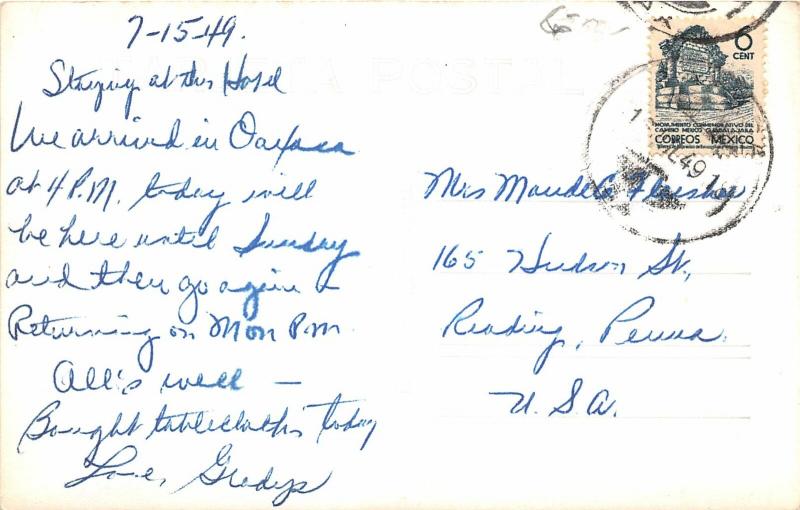 7-15-49.
Staying at this Hotel
We arrived in Oaxaca
at 4 P.M. today will
be here until Sunday
and then go again
Returning on Mon P.M.
All's well —
Bought tablecloths today
Love, Gladys
TARJETA POSTAL
6
CENT
MONUMENTO CONMEMORATIVO DEL
CAMINO MEXICO GUADALAJARA
CORREOS MEXICO
Mrs Maude G Fleisher
165 Hudson St.,
Reading, Penna.
U.S.A.